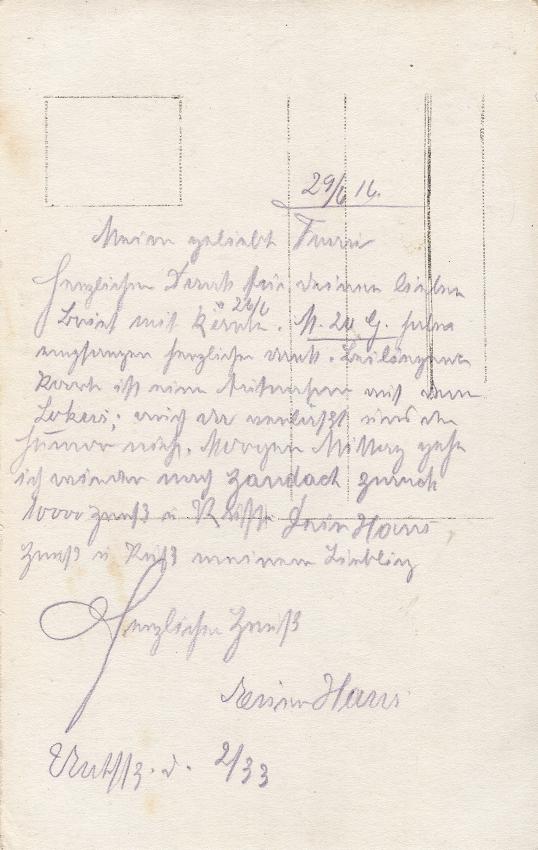 29/6 16.
Meine geliebt Frau
Herzlichen Dank für deinen lieben
Brief mit Karte. 26/6 M. 20 G. habe
empfangen herzlichen dank. Beiliegende
Karte ist eine Aufnahme mit dem
auch da verläßt uns der
Humor nicht. Morgen Mittag gehe
ich wieder nach Zandach zurück
1000 Gruß u Küsse Dein Hans
Gruß u Kuß meinem Liebling
Herzlichen Gruß
Hans
2/33